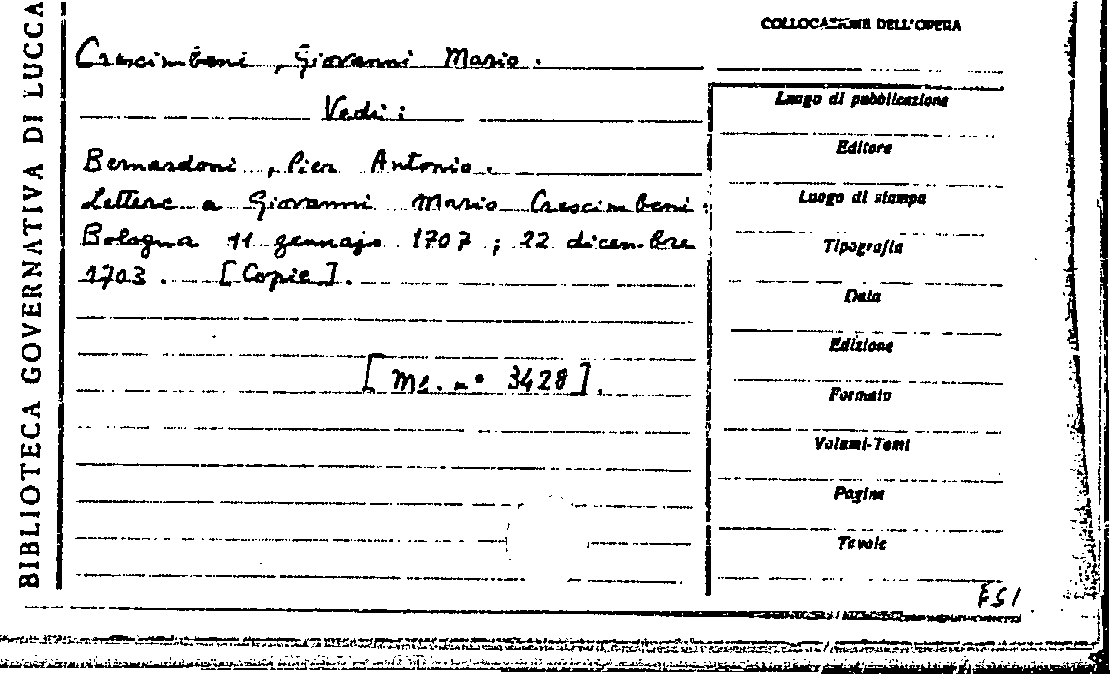 BIBLIOTECA GOVERNATIVA DI LUCCA
COLLOCAZIONE DELL'OPERA
Crescimbeni, Giovanni Mario.
Vedi:
Bernardoni, Pier Antonio.
Lettere a Giovanni Mario Crescimbeni.
Bologna 11 gennajo 1707; 22 dicembre
1703. [Copie].
[Ms. n° 3428].
Luogo di pubblicazione
Editore
Luogo di stampa
Tipografia
Data
Edizione
Formato
Volumi-Tomi
Pagine
Tavole